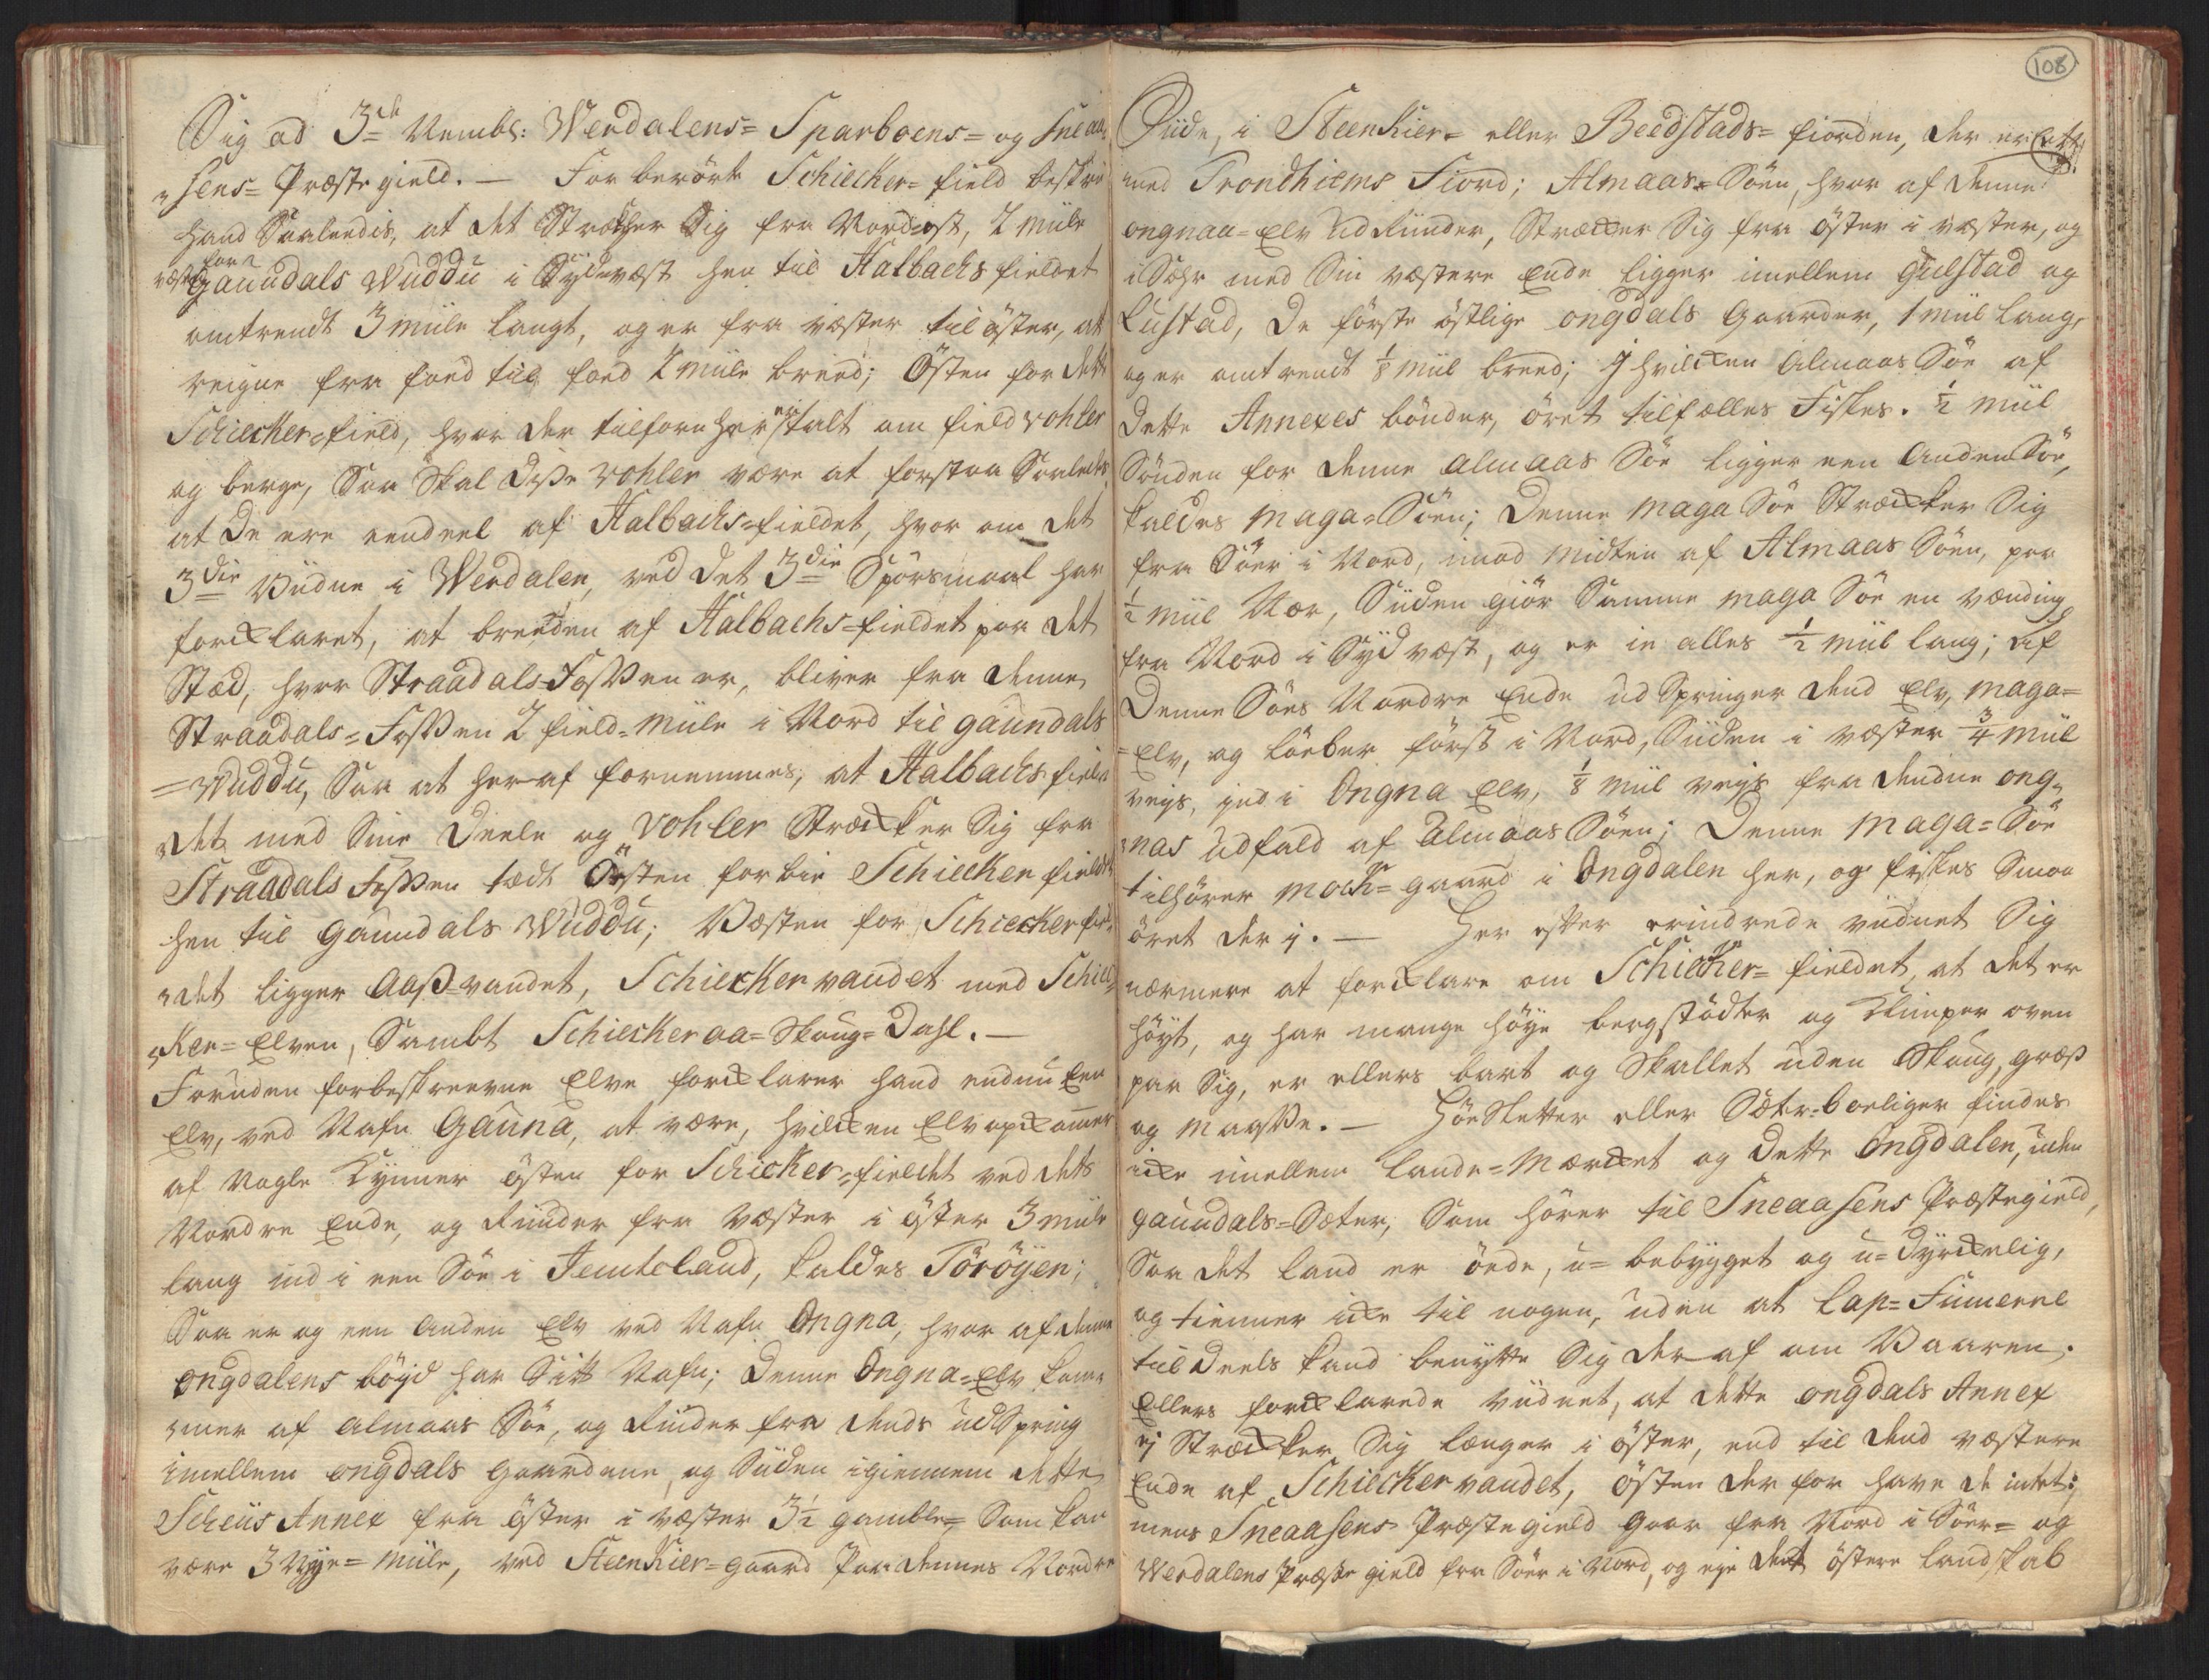 Sig ad 3de Nembl: Werdalens= Sparboens= og Sneaa,
,,sens= Præstegield. — For berörte Schiecker= field beskrev
hand Saaledis, at det Strækker Sig fra Nordost, 2 miile
væsten for Gauudals Wuddu i Sydvæst hen til Halbachs fieldet
omtrendt 3 miile langt, og er fra væster til öster, at
reigne fra foed til foed 2 miile breed; Østen for dette
Schiecker=field, hvor der tilforn her er talt om field vohler
og berge, Saa Skal disse vohler være at forstaa Saaledes,
at de ere eendeel af Halbachs=fieldet, hvor om det
3die Viidne i Werdalen, ved det 3die Spörsmaal har
forclaret, at breeden af Halbachs=fieldet paa det
Stæd, hvor Straadals=Fossen er, bliver fra denne
Straadals=Fossen 2 field=miile i Nord til gaundals
=Wuddu, Saa at heraf fornemmes, at Halbachs fiel,
,,det med Sine Deele og Vohler Strækker Sig fra
Straadals Fossen tædt Östen forbie Schiecker fieldet
hen til gaundals Wuddu; Væsten for Schiecker fiel,
,,det ligger Aass=vandet, Schiecker vandet med Schiec,
,,Ker=Elven, Sambt Schieckeraa=Skoug=Dahl.—
Foruden forbeskreevne Elve forclarer hand endnu Een
Elv, ved Nafn Gauna, at være, hvilcken Elv opkommer
af Nogle Kynner östen for Schiecker=fieldet ved dets
Nordre Ende, og Rinder fra Væster i öster 3 miile
lang ind i een Söe i Jemteland, kaldes Töröyen;
Saa er og een Anden Elv ved Nafn Ongna, hvor af denne
Ongdalens böyd har Sitt Nafn; Denne Ongna=Elv kom,
,,mer af Almaas Söe, og Rinder fra dends udspring
imellem ongdals gaardene, og Siiden igiennem dette
Scheüs Annex fra öster i væster 3½ gamble, Som kan
være 3 Nye= miile, ved Steenkier=gaard paa dennes Nordre
108
Siide, i Steenkier= eller Beedstads= fiorden, der er ett
med Trondhiems Fiord; Almaas=Söen, hvor af denne
ongnaa=Elv udRiinder, Strækker Sig fra öster i væster, og
med Sin væstere Ende ligger imellem Gulstad og
Lustad, de förste östlige ongdals Gaarder, 1 miil lang,
og er omtrendt ⅛ miil breed; I hvilcken Almaas Söe af
dette Annexes bönder, öret tilfælles Fiskes. ½ miil
Sönden for denne Almaas Söe ligger een Anden Söe,
kaldes Maga=Söen; Denne Maga Söe Strækker Sig
fra Söer i Nord, imod midten af Almaas Söen, paa
½ miil Nær, Siiden giör Samme Maga Söe en vending
fra Nord i Sydvæst, og er in alles ½ miil lang; Af
Denne Söes Nordre Ende udSpringer dend Elv, Maga=
=Elv, og löeber först i Nord, Siiden i væster ¾ miil
veys, ind i Ongna Elv, ⅛ miil veys fra denne ong,
,,nas udfald af Almaas Söen; Denne Maga=Söe
tilhörer Mock=gaard i Ongdalen her, og fiskes Smaa
öret der i. — Her efter erindrede viidnet Sig
nærmere at forclare om Schiecker= fieldet, at det er
höyt, og har mange höye bergstödter og Klimper oven
paa Sig, er ellers bart og Skallet uden Skoug, græs
og Maasse. — Höesletter eller Sæter=boeliger findes
icke imellem Lande=Mærcket og dette Ongdalen, uden
gaundals=Sæter, Som hörer til Sneaasens Præstegield,
Saa det land er öede, u=bebygget og u=dyrckelig,
og tienner icke til nogen, uden at Lap=Finnerne
til deels kand benytte Sig der af om Vaaren.
Ellers forclarede viidnet, at dette ongdals Annex
ej Strækker Sig længer i öster, end til dend væstere
Ende af Schiecker vandet, östen der for have de intet;
mens Sneaasens Præstegield gaar fra Nord i Söer= og
Werdalens Præstegield fra Söer i Nord, og eje det östere landskab